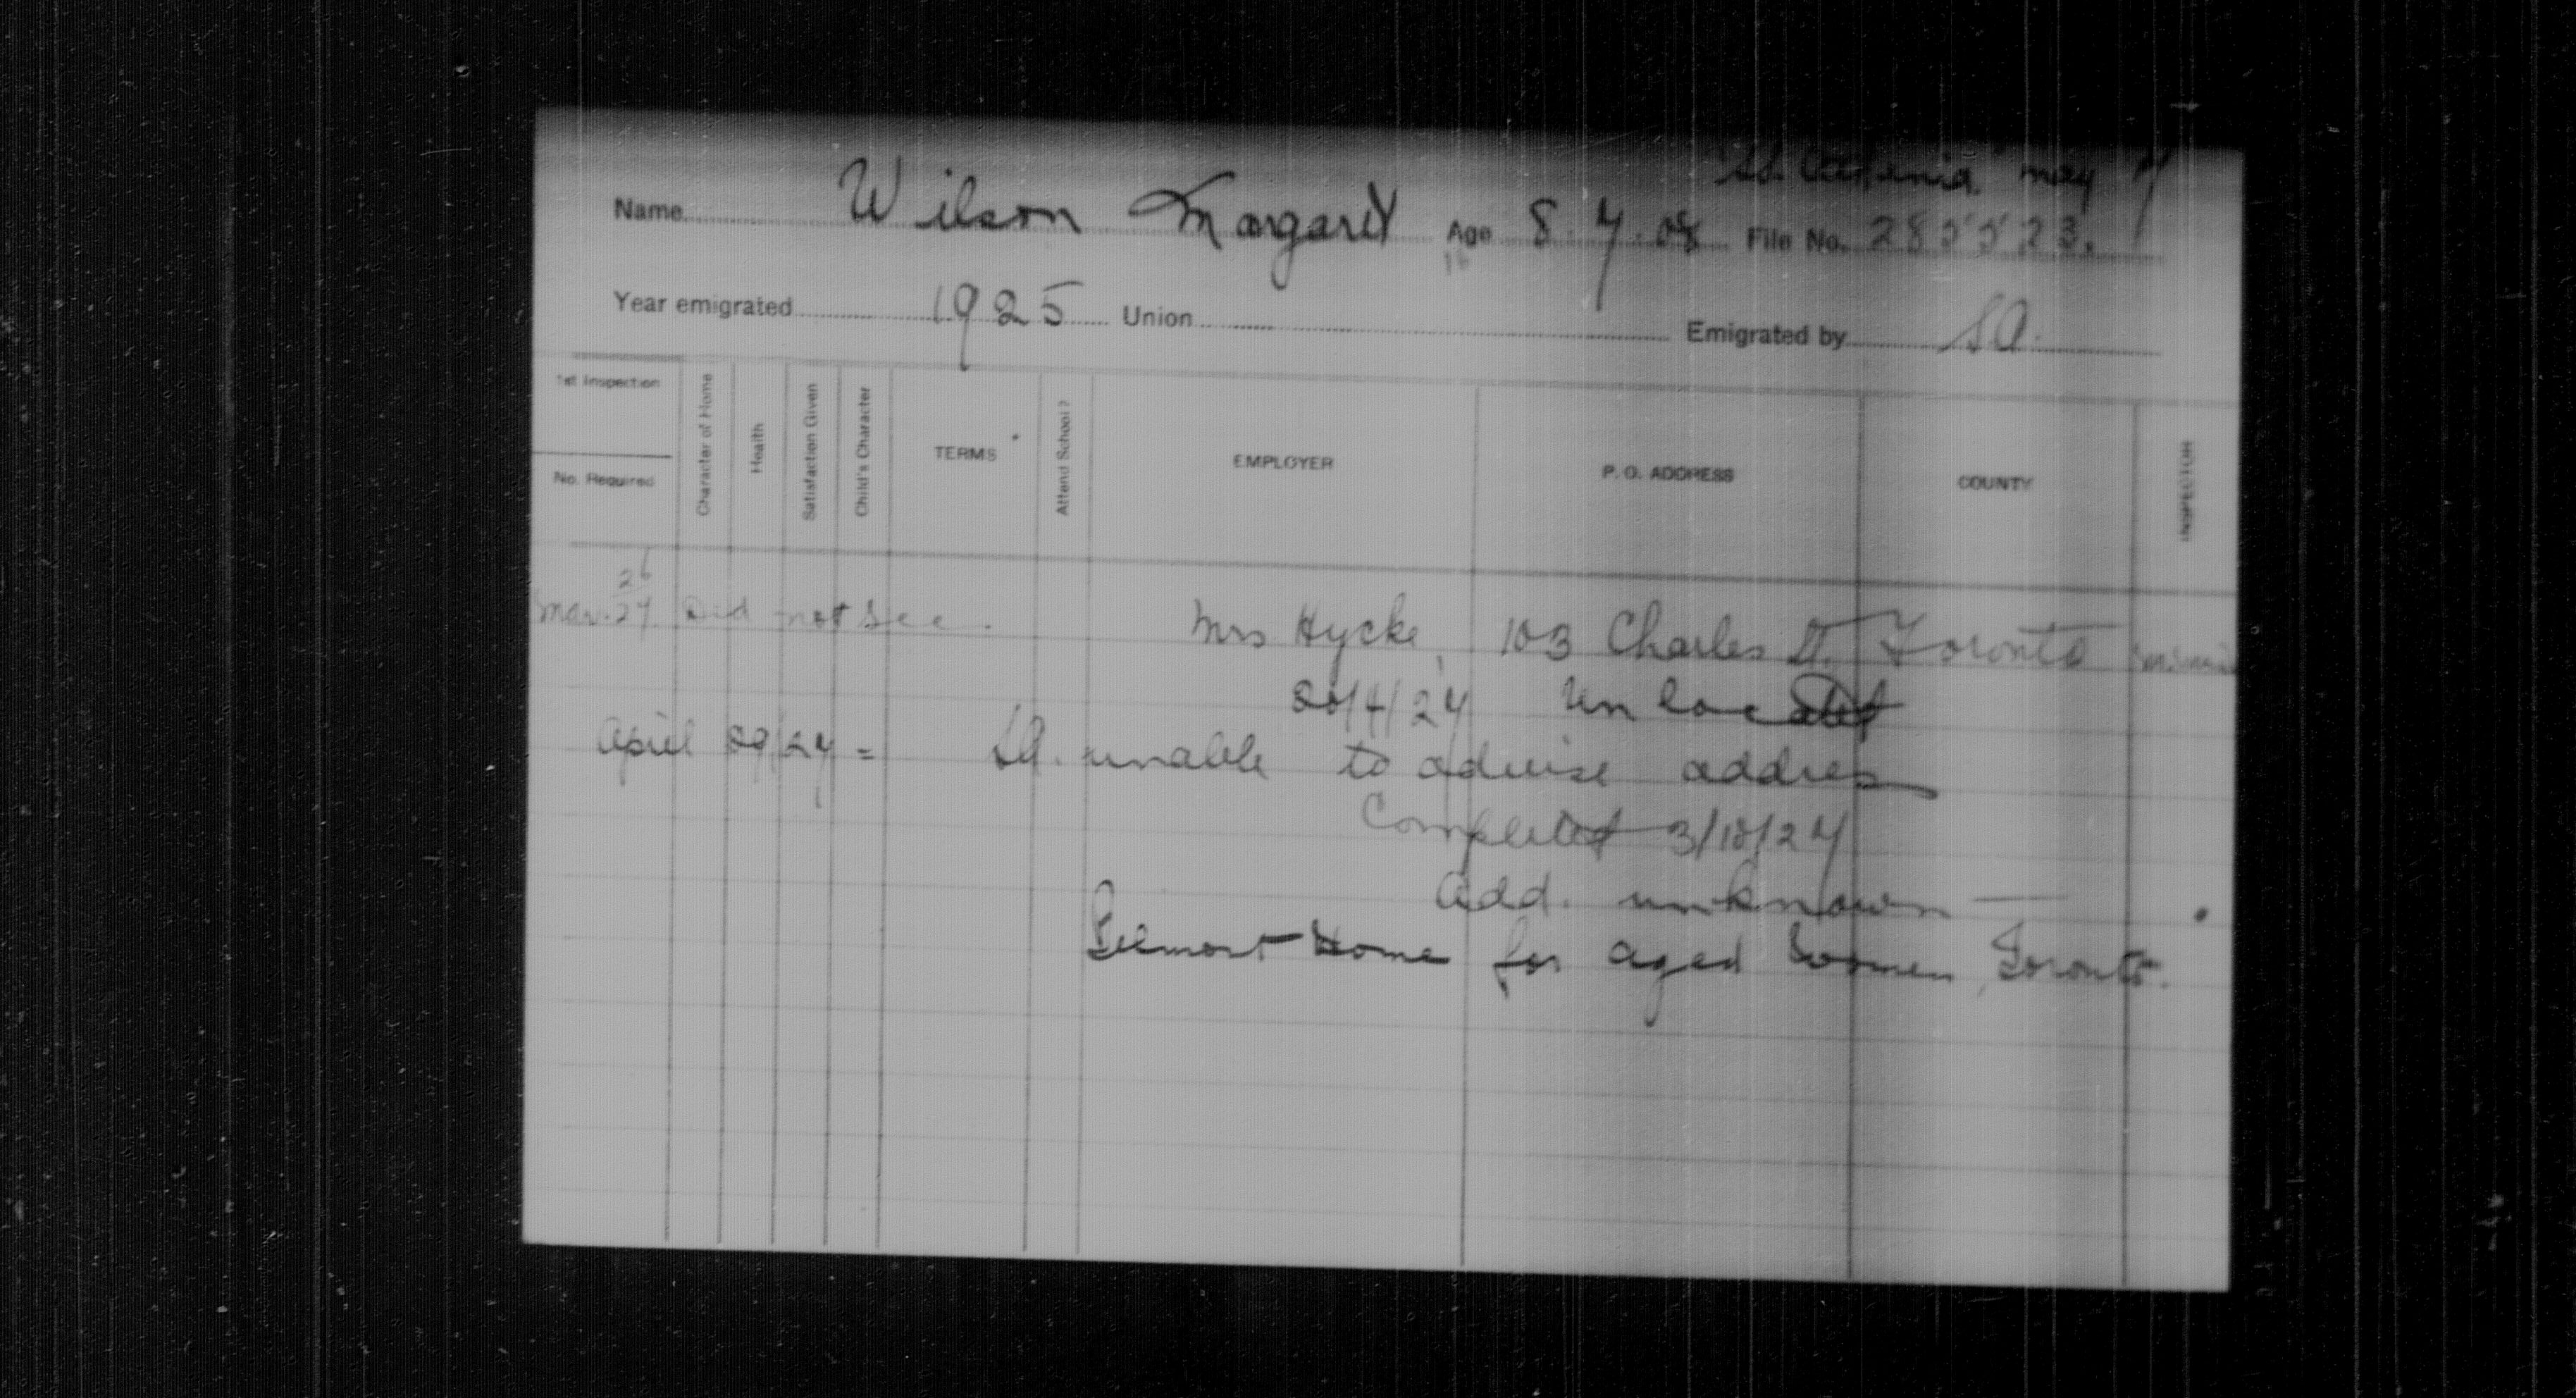 May
Name Wilson Margaret Age 8.7.08 File No. 285523.
16
Year emigrated 1925 Union Emigrated by S.A.
1st Inspection
No. Required
Character of Home
Health
Satisfaction Given
Child's Character
TERMS
Attend School?
EMPLOYER
P. O. ADDRESS
COUNTY
INSPECTOR
26
Mar. 27. Did not see. Mrs Hycke, 103 Charles St. Toronto
20/4/27 Unlocated
April 29/27 = S.A. unable to advise address
Completed 3/10/27
Add. unknown —
Belmont Home for Aged Women, Toronto.